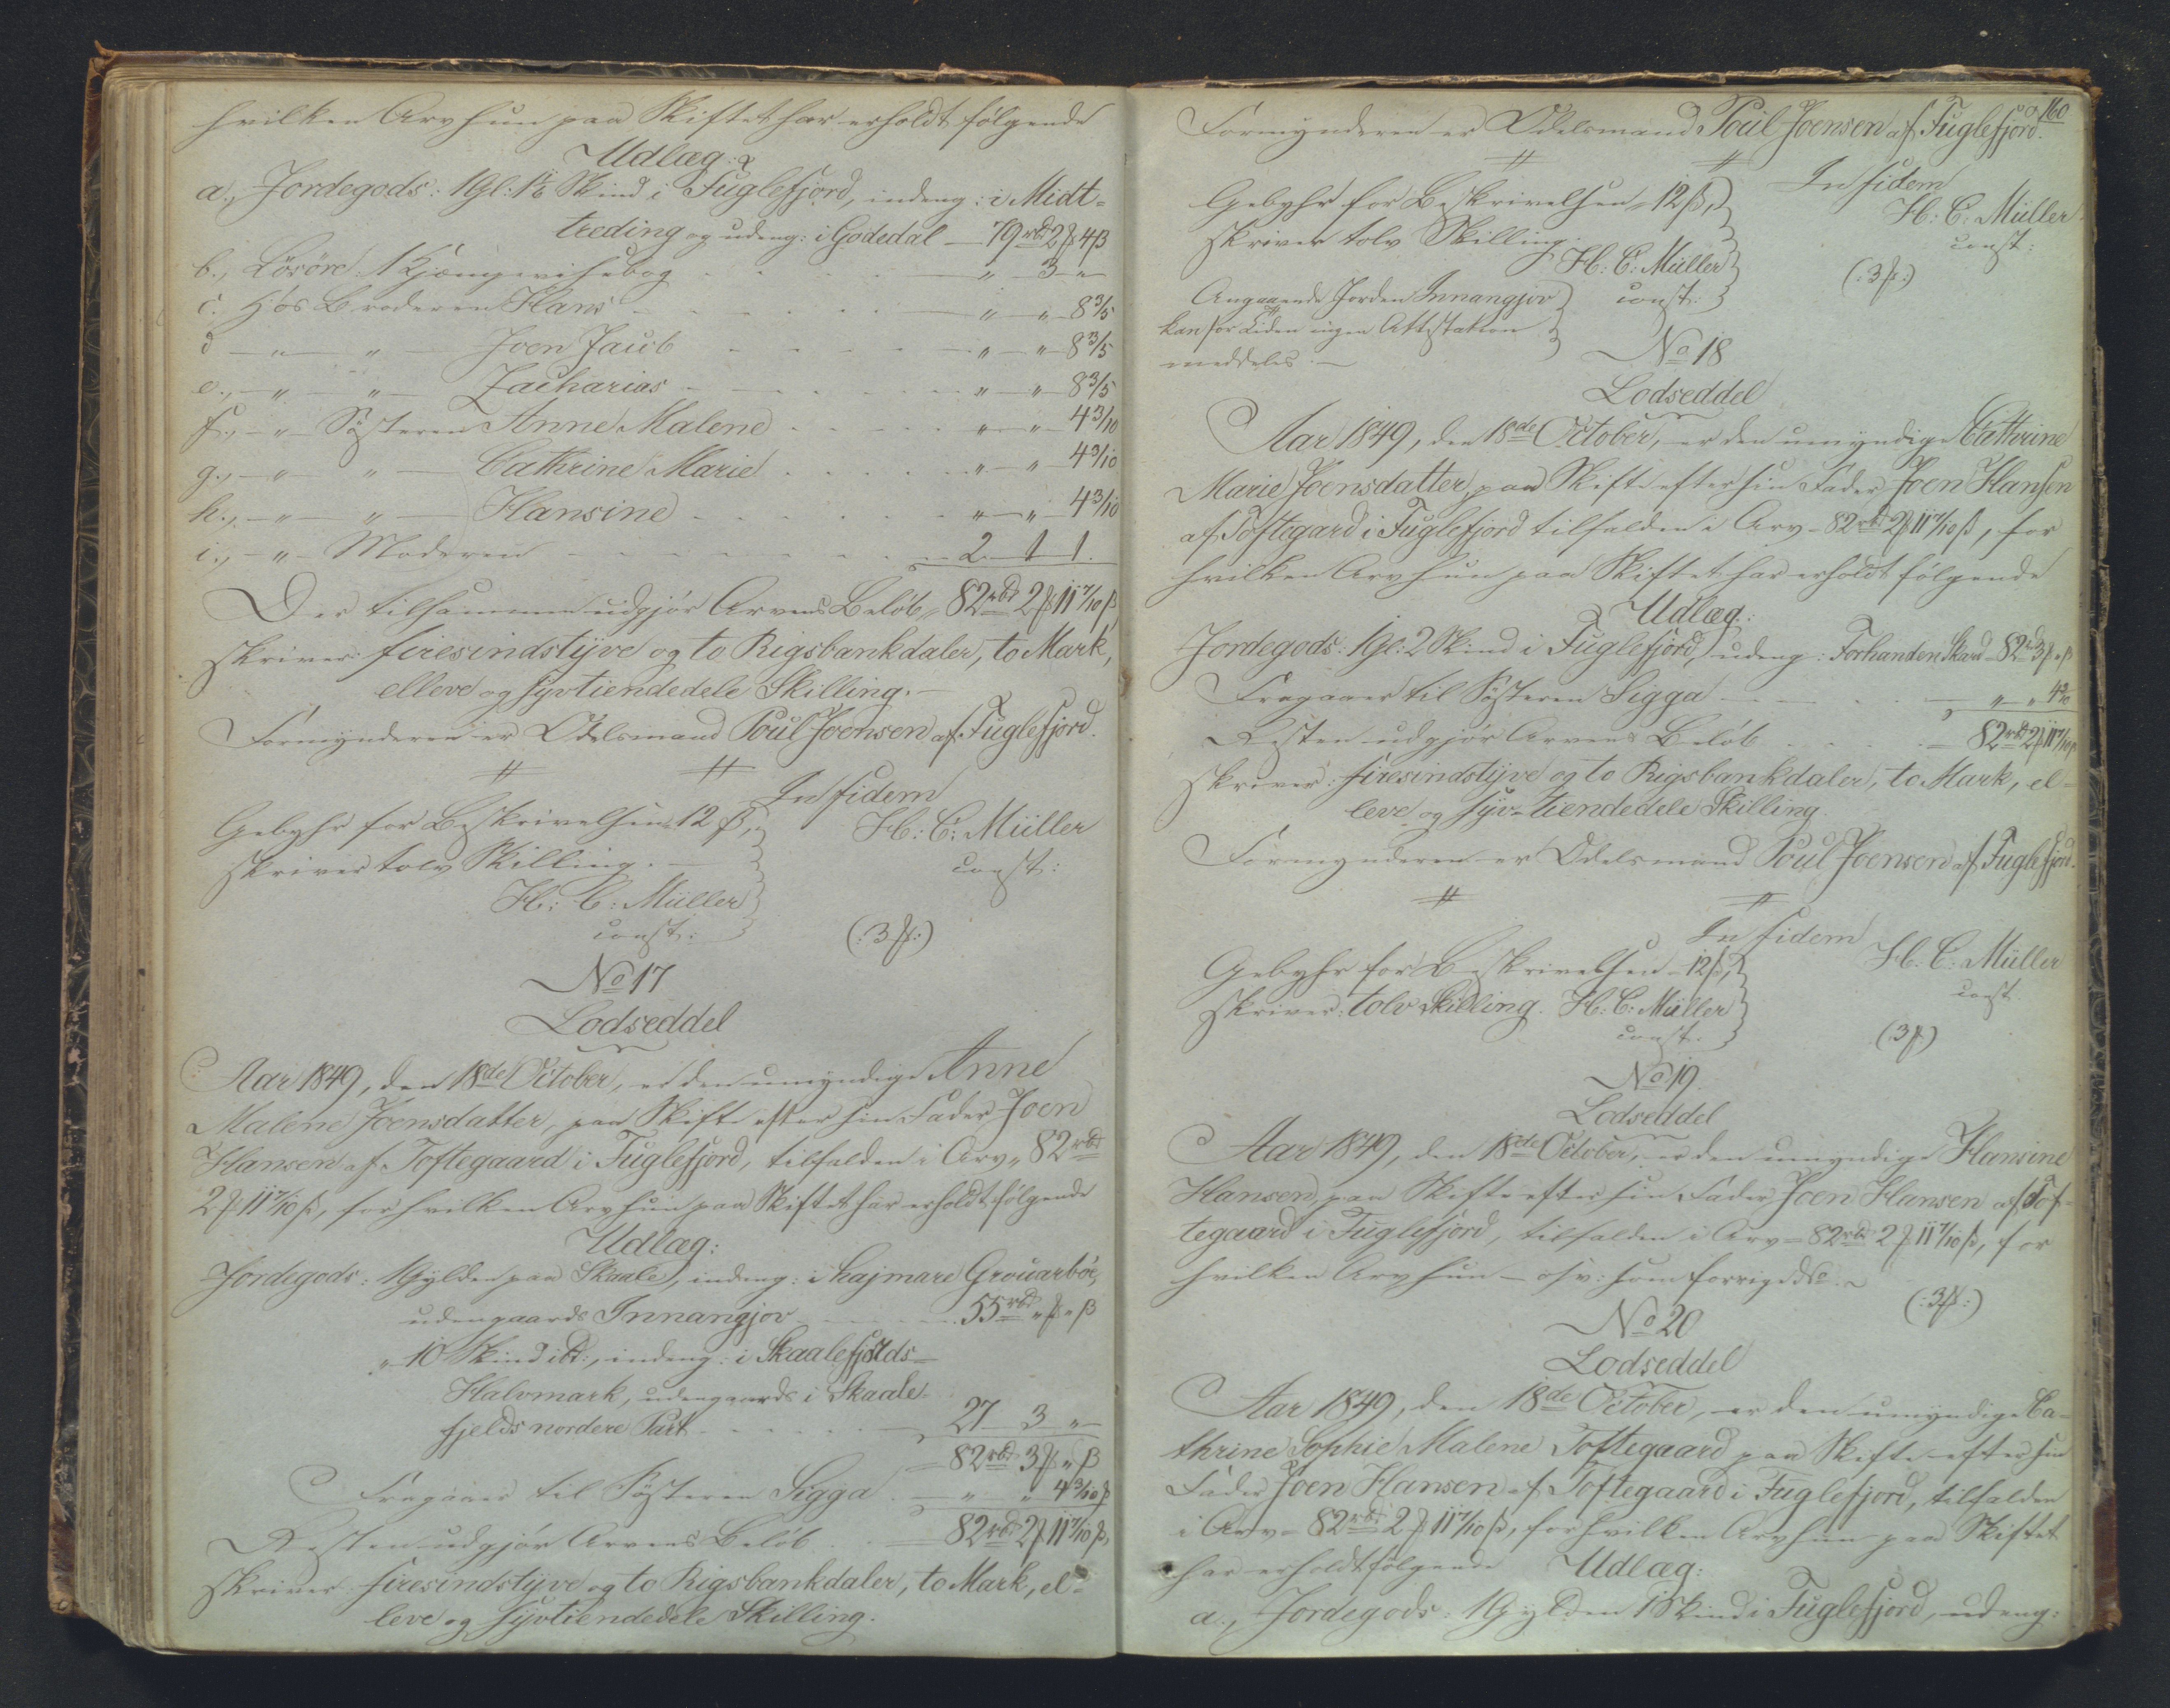 hvilken Arv hun paa Skiftet har erholdt følgende
Udlæg:
a., Jordegods: 1 Gl: 1 Skind i Fuglefjord, indeng: i Midt-
treding og udeng: i Godedal — 79 rbd 2 ₻ 4 ß
b., Lösöre: 1 Kjæmpevisebog - - - „ 3 „
c. Hos Broderen Hans - - - „ „ 8 3/5
d — „ — „ — Joen Jacob - - - „ „ 8 3/5
e., — „ — „ — Zacharias - - - „ „ 8 3/5
f., — „ — Søsteren Anne Malene - - - „ „ 4 3/10
g., — „ — „ — Cathrine Marie - - - „ „ 4 3/10
h., — „ — „ — Hansine - - - „ „ 4 3/10
i., — „ — Moderen - - - 2 1 1.
Der tilsammen udgjør Arvens Beløb „ 82 rbd 2 ₻ 11 7/10 ß
skriver: firesindstyve og to Rigsbankdaler, to Mark,
elleve og syvtiendedele Skilling. —
Formynderen er Odelsmand Poul Joensen af Fuglefjord.
In fidem
Gebyhr for Beskrivelsen 12 ß,
H: C: Müller
skriver tolv Skilling. —
const:
H: C: Müller
const:
(: 3 ₻ :)
No 17
Lodseddel
Aar 1849, den 18de October, er den umyndige Anne
Malene Joensdatter, paa Skifte efter sin Fader Joen
Hansen af Toftegaard i Fuglefjord, tilfalden i Arv „ 82 rbd
2 ₻ 11 7/10 ß, for hvilken Arv hun paa Skiftet har erholdt følgende
Udlæg:
Jordegods: 1 Gylden paa Skaale, indeng: i hajmare Grouarböe,
udengaards Innangjov - - - 55 rbd „ ₻ „ ß
„ 10 Skind ibd:, indeng: i Skaalefjelds-
Halvmark, udengaards i Skaale-
fjelds nordere Part - - - 27 3 „
82 rbd 3 ₻ „ ß
Fragaaer til Søsteren Sigga - - „ „ 4 3/10 ß
Resten udgjør Arvens Beløb - - 82 rbd 2 ₻ 11 7/10 ß,
skriver: firesindstyve og to Rigsbankdaler, to Mark, el-
leve og syvtiendedele Skilling.
160
Formynderen er Odelsmand Poul Joensen af Fuglefjord.
In fidem
Gebyhr for Beskrivelsen 12 ß,
H: C: Müller
skriver tolv Skilling.
const:
H: C: Müller
const:
(: 3 ₻ :)
Angaaende Jorden Innangjov
kan for Tiden ingen Attestation
meddeles. —
No 18
Lodseddel
Aar 1849, den 18de October, er den umyndige Cathrine
Marie Joensdatter, paa Skifte efter sin Fader Joen Hansen
af Toftegard i Fuglefjord tilfalden i Arv - 82 rbd 2 ₻ 11 7/10 ß, for
hvilken Arv hun paa Skiftet har erholdt følgende
Udlæg:
Jordegods: 1 Gl: 2 Skind i Fuglefjord, udeng: Forhanden Skard - 82 rbd 3 ₻ „ ß
Fragaaer til Søsteren Sigga - - - „ „ 4 3/10
Resten udgjør Arvens Beløb - - - 82 rbd 2 ₻ 11 7/10 ß
skriver: firesindstyve og to Rigsbankdaler, to Mark, el-
leve og syv-tiendedele Skilling.
Formynderen er Odelsmand Poul Joensen af Fuglefjord.
In fidem
Gebyhr for Beskrivelsen - 12 ß,
H. C. Müller
skriver: tolv Skilling. H: C: Müller
const
const:
(3 ₻)
No 19
Lodseddel
Aar 1849, den 18de October, er den umyndige Hansine
Hansen, paa Skifte efter sin Fader Joen Hansen af Tof-
tegaard i Fuglefjord, tilfalden i Arv - 82 rbd 2 ₻ 11 7/10 ß, for
hvilken Arv hun - osv: som forrige No. -
(: 3 ₻ :)
No 20
Lodseddel
Aar 1849, den 18de October, er den umyndige Ca-
thrine Sophie Malene Toftegaard paa Skifte efter sin
Fader Joen Hansen af Toftegaard i Fuglefjord, tilfalden
i Arv - 82 rbd 2 ₻ 11 7/10 ß, for hvilken Arv hun paa Skiftet
har erholdt følgende Udlæg:
a., Jordegods: 1 Gylden 1 Skind i Fuglefjord, udeng: